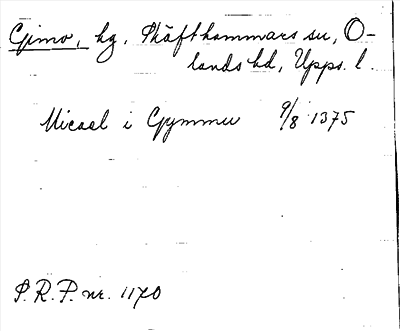 Gimo, hg, Skäfthammars sn, O-
lands hd, Upps. l.
Micael i Gymmu 9/8 1375
P.R.P. nr. 1170